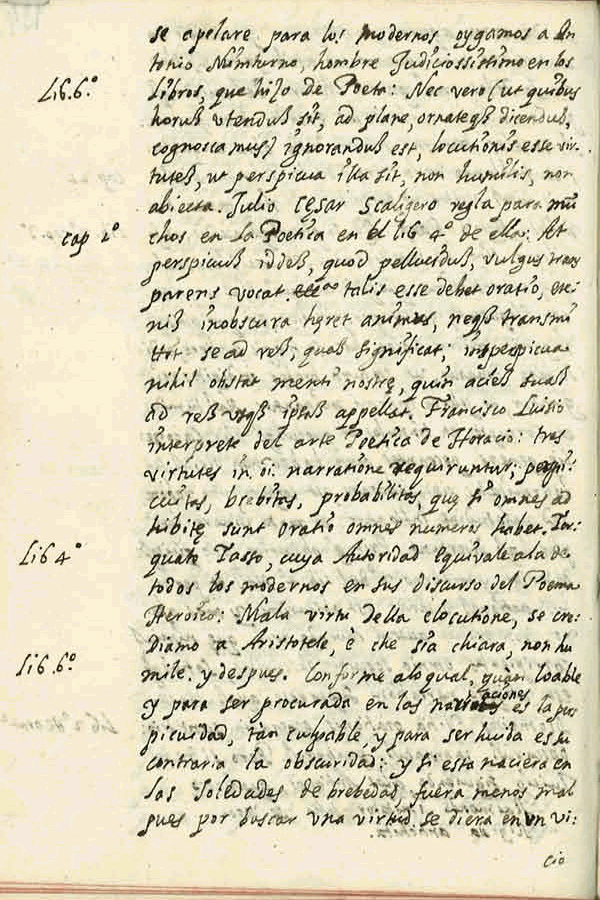 se apelare para los modernos oygamos a An
tonio Minturno, hombre Judiciossissimo en los
Lib. 6.º
Libros, que hizo de Poeta: Nec vero (ut quibus
horuß vtenduß sit, ad plane, ornateqß dicenduß,
cognoscamus) ignoranduß est, locutionis esse vir-
tuteß, ut perspicua illa sit, non humilis, non
abiecta. Julio Cęsar Scaligero regla para mu
cap 1º
chos en La Poetica en el lib 4º de ella: At
perspicuß iddeß, quod pelluciduß, vulgus trans
parens vocat. talis esse debet oratio, ete:
niß inobscura hęret animus, neqß transmi
ttit se ad reß, quaß significat; in perspicua
nihil obstat menti nostrę, quin acieß suaß
ad reß vsqß ipsaß appellat. Francisco Luisio
interprete del arte Poetica de Horacio: tres
virtutes in oi. narratione requiruntur; perspi:
cuitas, brebitas, probabilitas, quę si omnes ad
hibitę sunt oratio omnes numeros habet. Tor:
Lib 4º
quato Tasso, cuya Autoridad equivale a la de
todos los modernos en sus discurso del Poema
Heroico: Mala virtu della elocutione, se cre:
Diamo a Aristotele, è che sia chiara, non hu
Lib. 6.º
mile. y despues. Conforme alo qual, quàn loable
y para ser procurada en las narraciones es la pers
picuidad, tàn culpable, y para ser huida es su
contraria la obscuridad: y si esta naciera en
las Soledades de brebedad, fuera menos mal
pues por buscar vna virtud, se diera en vn vi:
cio